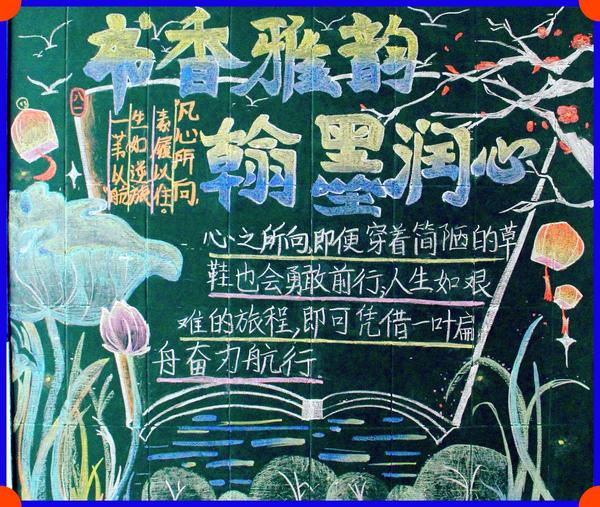 书香雅韵
翰墨润心
凡心所向,
素履以往。
生如逆旅
一苇以航
八一
心之所向,即便穿着简陋的草
鞋也会勇敢前行;人生如艰
难的旅程,即可凭借一叶扁
舟奋力航行